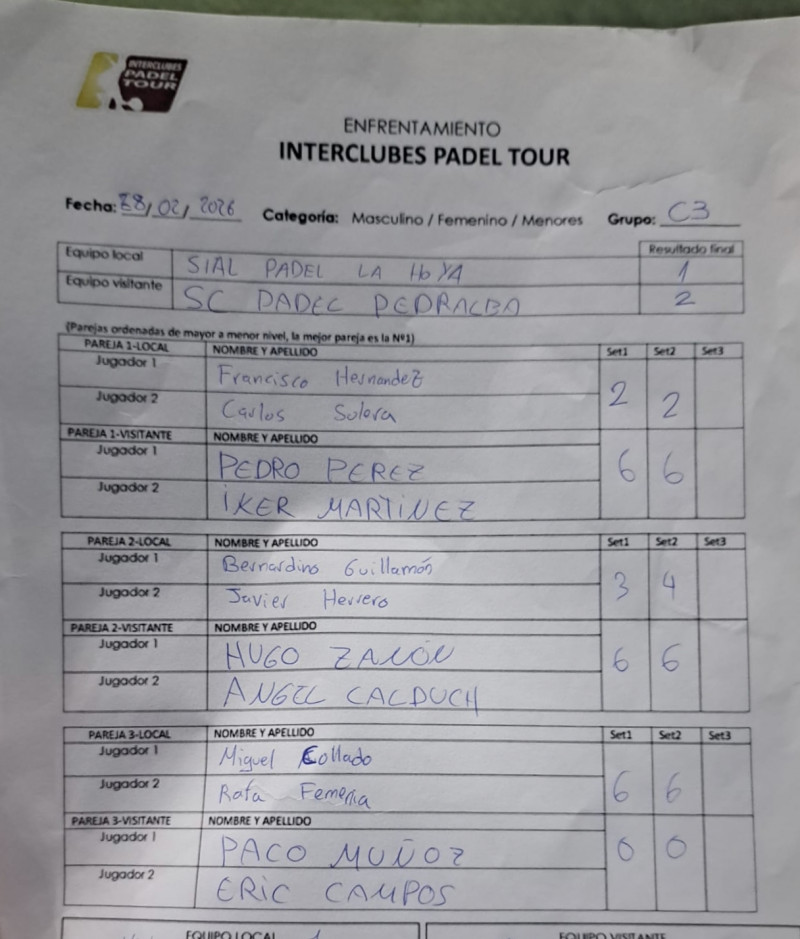 INTERCLUBES
PADEL
TOUR
ENFRENTAMIENTO
INTERCLUBES PADEL TOUR
Fecha: 28/02/2026 Categoría: Masculino / Femenino / Menores Grupo: C3
Resultado final
Equipo local SIAL PADEL LA HOYA 1
Equipo visitante SC PADEL PEDRALBA 2
(Parejas ordenadas de mayor a menor nivel, la mejor pareja es la Nº1)
PAREJA 1-LOCAL NOMBRE Y APELLIDO Set1 Set2 Set3
Jugador 1 Francisco Hernandez
2 2
Jugador 2 Carlos Solera
PAREJA 1-VISITANTE NOMBRE Y APELLIDO
Jugador 1 PEDRO PEREZ
6 6
Jugador 2 IKER MARTINEZ
PAREJA 2-LOCAL NOMBRE Y APELLIDO Set1 Set2 Set3
Jugador 1 Bernardino Guillamón
3 4
Jugador 2 Javier Herrero
PAREJA 2-VISITANTE NOMBRE Y APELLIDO
Jugador 1 HUGO ZANÓN
6 6
Jugador 2 ANGEL CALDUCH
PAREJA 3-LOCAL NOMBRE Y APELLIDO Set1 Set2 Set3
Jugador 1 Miguel Collado
6 6
Jugador 2 Rafa Femenia
PAREJA 3-VISITANTE NOMBRE Y APELLIDO
Jugador 1 PACO MUÑOZ
0 0
Jugador 2 ERIC CAMPOS
EQUIPO LOCAL EQUIPO VISITANTE